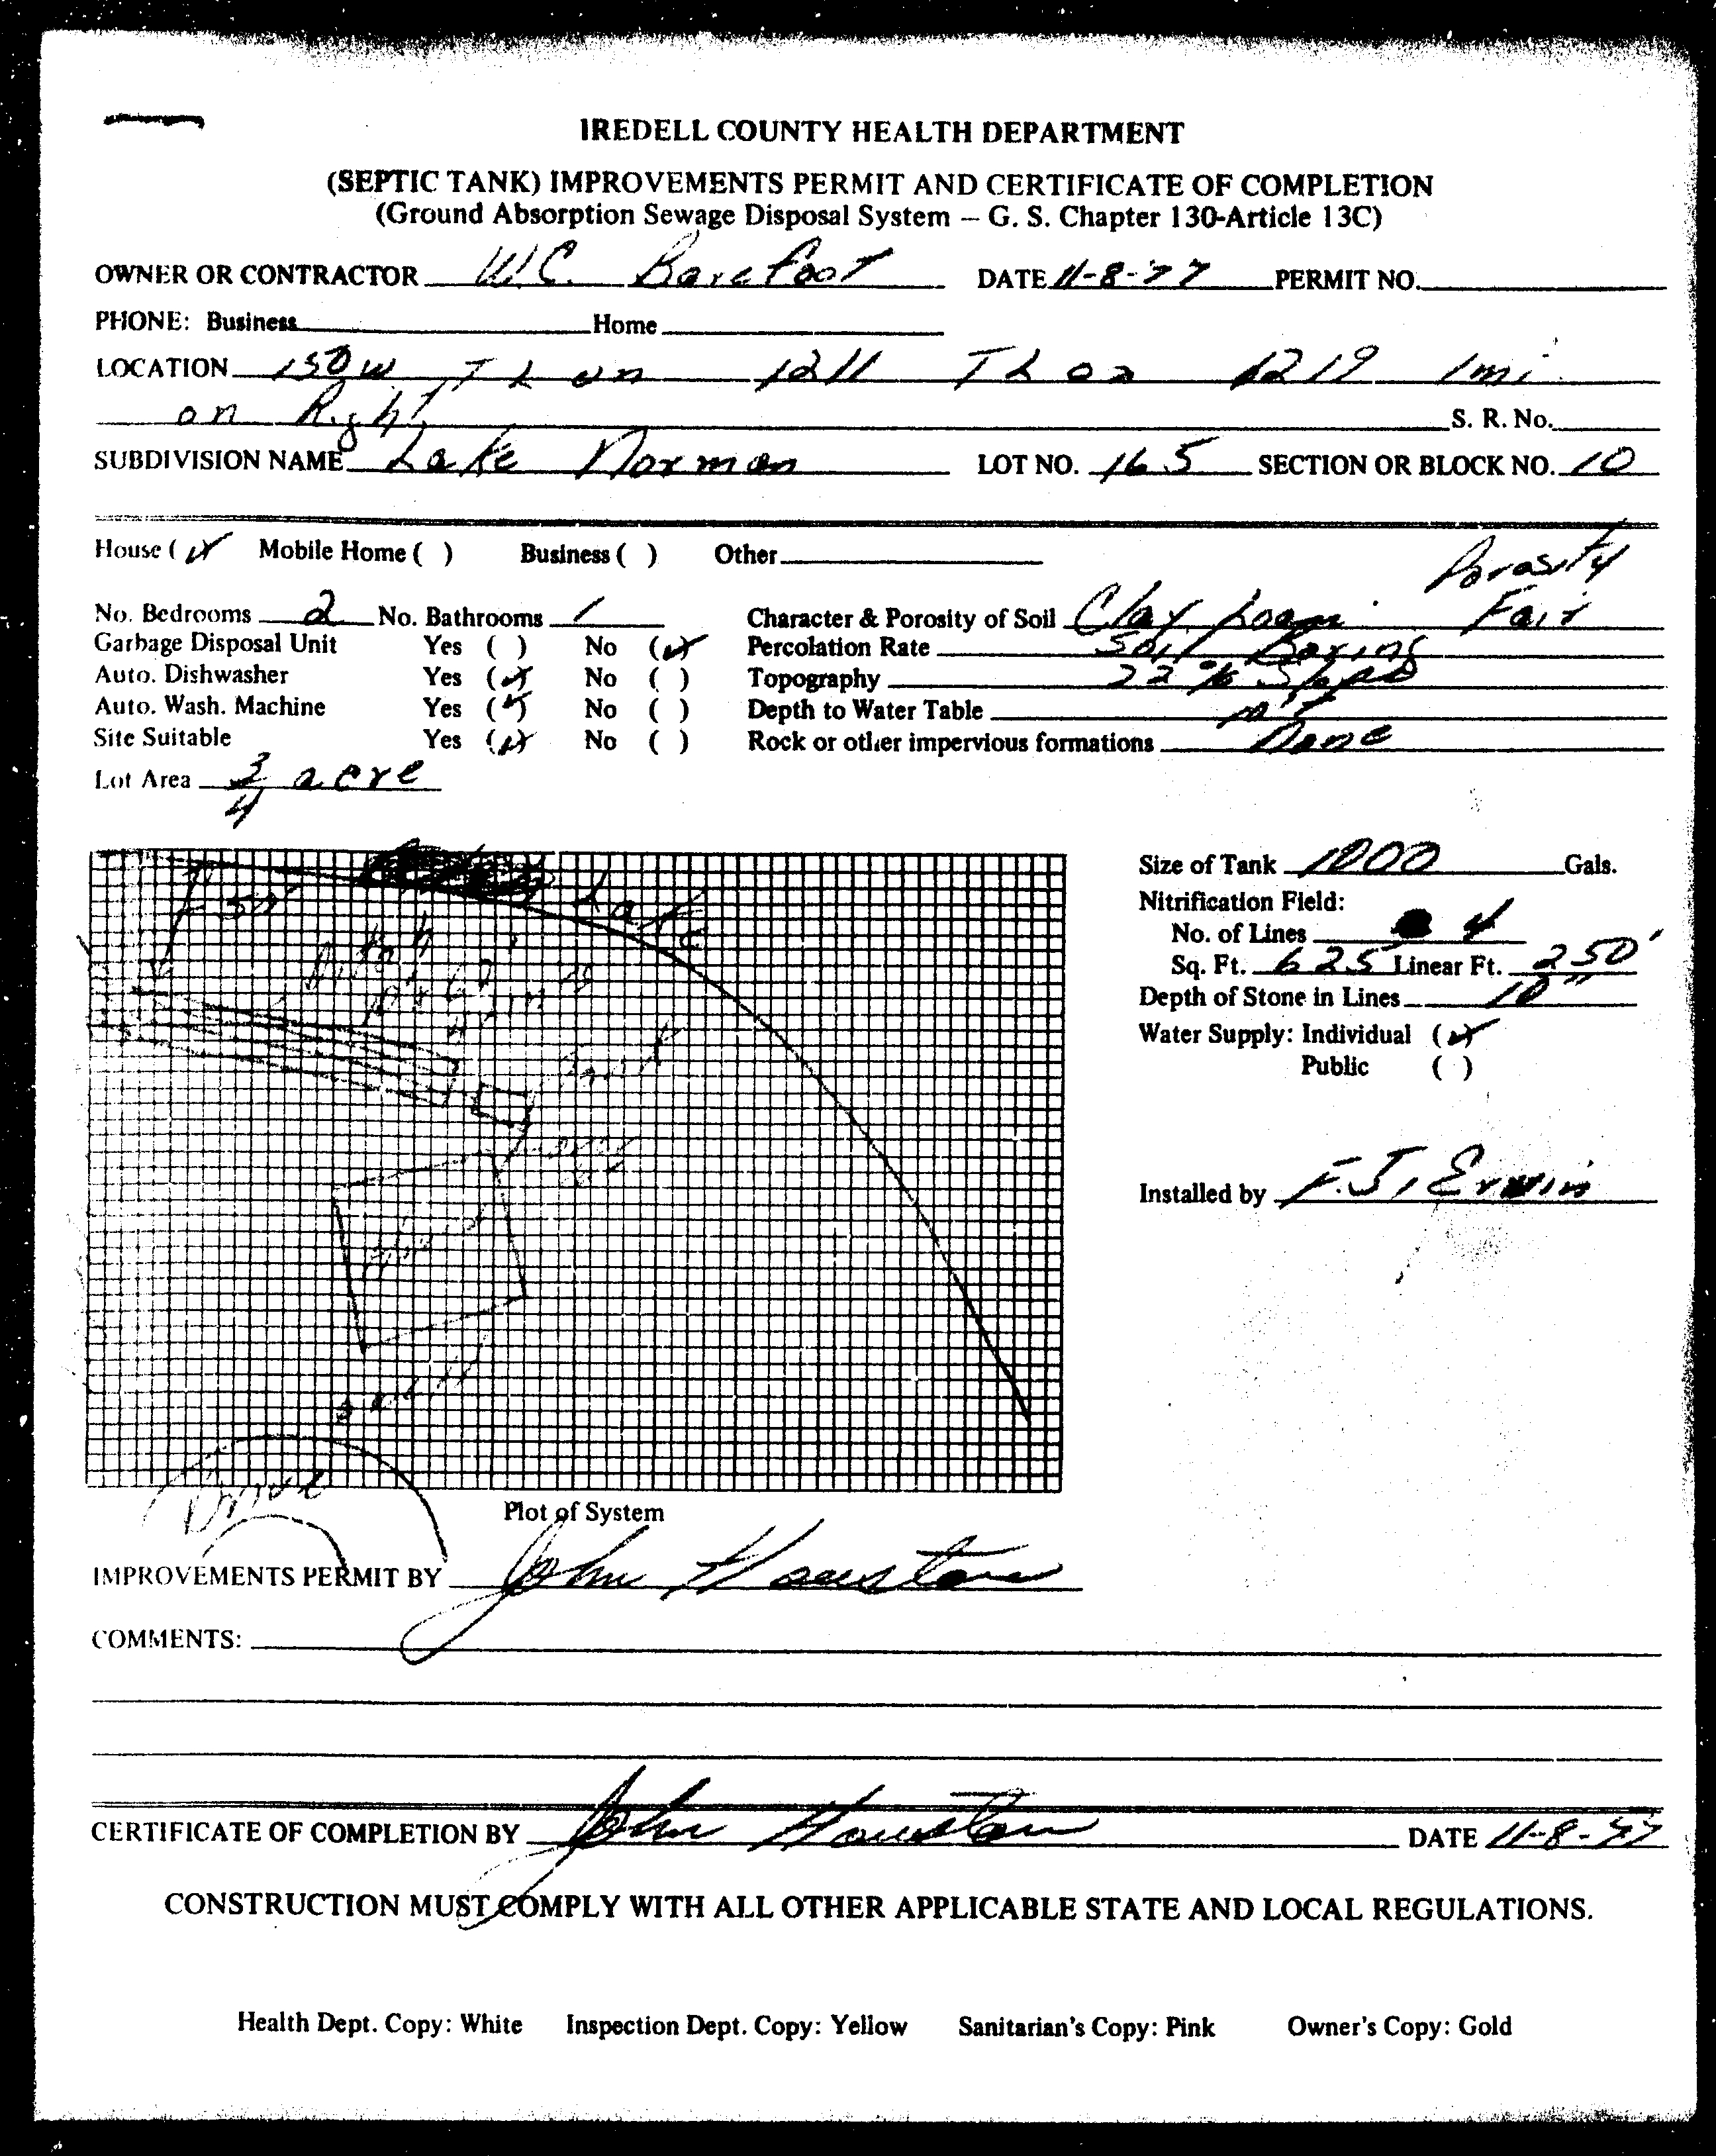 IREDELL COUNTY HEALTH DEPARTMENT
(SEPTIC TANK) IMPROVEMENTS PERMIT AND CERTIFICATE OF COMPLETION
(Ground Absorption Sewage Disposal System – G. S. Chapter 130-Article 13C)
OWNER OR CONTRACTOR W.C. Barefoot DATE 11-8-77 PERMIT NO.
PHONE: Business Home
LOCATION 150 W T L on 1211 T L on 1219 1 mi
on Right S. R. No.
SUBDIVISION NAME Lake Norman LOT NO. 165 SECTION OR BLOCK NO. 10
House (✓) Mobile Home ( ) Business ( ) Other
Porosity
No. Bedrooms 2 No. Bathrooms 1 Character & Porosity of Soil Clay Loam Fair
Garbage Disposal Unit Yes ( ) No (✓) Percolation Rate Soil Boring
Auto. Dishwasher Yes (✓) No ( ) Topography 22% Slope
Auto. Wash. Machine Yes (✓) No ( ) Depth to Water Table
Site Suitable Yes (✓) No ( ) Rock or other impervious formations None
Lot Area 3/4 acre
Size of Tank 1000 Gals.
Nitrification Field:
No. of Lines 4
Sq. Ft. 625 Linear Ft. 250'
Depth of Stone in Lines 10"
Water Supply: Individual (✓)
Public ( )
Installed by F.J. Erwin
50'
Lake
4 lines
Tank
Drive
Plot of System
IMPROVEMENTS PERMIT BY John Houston
COMMENTS:
CERTIFICATE OF COMPLETION BY John Houston DATE 11-8-77
CONSTRUCTION MUST COMPLY WITH ALL OTHER APPLICABLE STATE AND LOCAL REGULATIONS.
Health Dept. Copy: White Inspection Dept. Copy: Yellow Sanitarian's Copy: Pink Owner's Copy: Gold